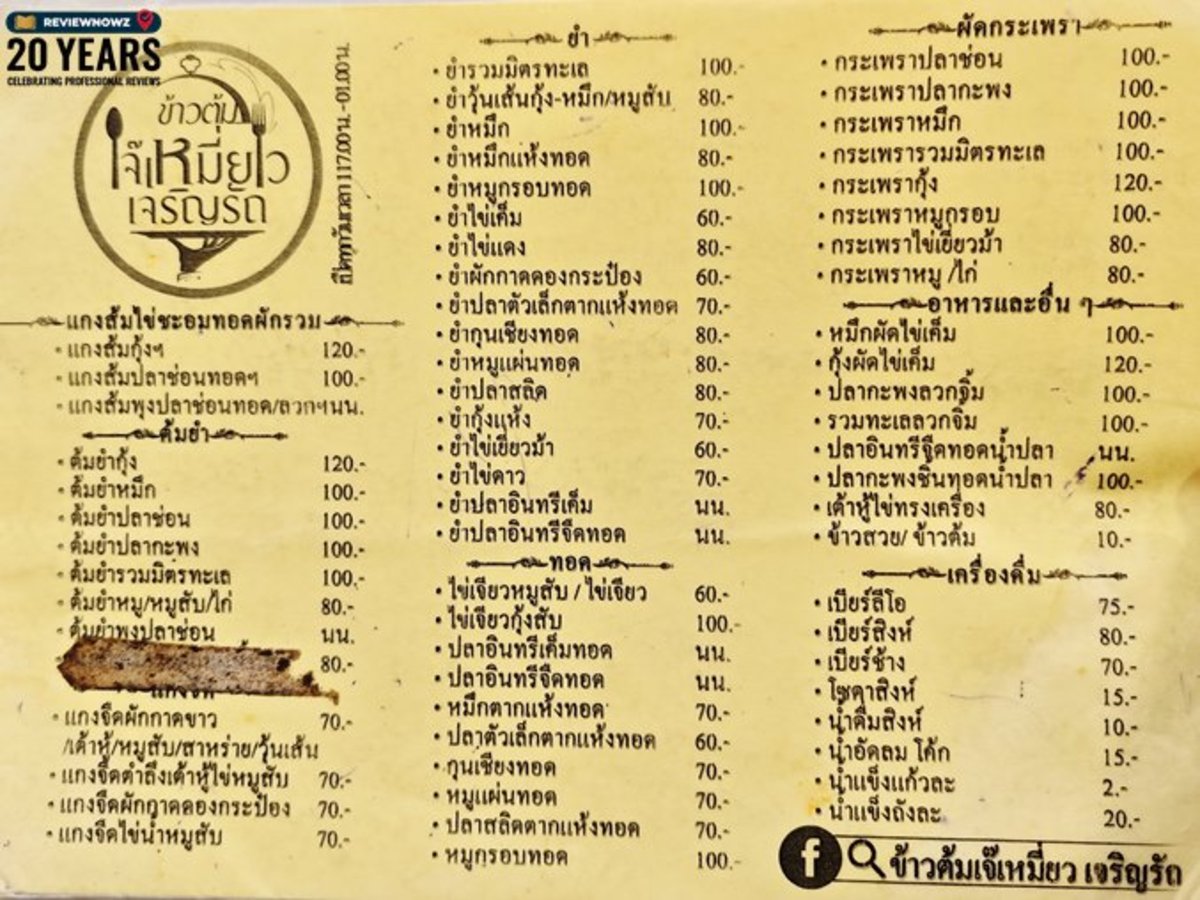 REVIEWNOWZ
20 YEARS
CELEBRATING PROFESSIONAL REVIEWS
ข้าวต้ม
เจ๊เหมี่ยว
เจริญรัถ
แกงส้มไข่ชะอมทอดผักรวม
• แกงส้มกุ้งฯ 120.-
• แกงส้มปลาช่อนทอดฯ 100.-
• แกงส้มพุงปลาช่อนทอด/ลวกฯ นน.
ต้มยำ
• ต้มยำกุ้ง 120.-
• ต้มยำหมึก 100.-
• ต้มยำปลาช่อน 100.-
• ต้มยำปลากะพง 100.-
• ต้มยำรวมมิตรทะเล 100.-
• ต้มยำหมู/หมูสับ/ไก่ 80.-
• ต้มยำพุงปลาช่อน นน.
80.-
แกงจืด
• แกงจืดผักกาดขาว 70.-
/เต้าหู้/หมูสับ/สาหร่าย/วุ้นเส้น
• แกงจืดตำลึงเต้าหู้ไข่หมูสับ 70.-
• แกงจืดผักกาดดองกระป๋อง 70.-
• แกงจืดไข่น้ำหมูสับ 70.-
ยำ
• ยำรวมมิตรทะเล 100.-
• ยำวุ้นเส้นกุ้ง-หมึก/หมูสับ 80.-
• ยำหมึก 100.-
• ยำหมึกแห้งทอด 80.-
• ยำหมูกรอบทอด 100.-
• ยำไข่เค็ม 60.-
• ยำไข่แดง 80.-
• ยำผักกาดดองกระป๋อง 60.-
• ยำปลาตัวเล็กตากแห้งทอด 70.-
• ยำกุนเชียงทอด 80.-
• ยำหมูแผ่นทอด 80.-
• ยำปลาสลิด 80.-
• ยำกุ้งแห้ง 70.-
• ยำไข่เยี่ยวม้า 60.-
• ยำไข่ดาว 70.-
• ยำปลาอินทรีเค็ม นน.
• ยำปลาอินทรีจืดทอด นน.
ทอด
• ไข่เจียวหมูสับ / ไข่เจียว 60.-
• ไข่เจียวกุ้งสับ 100.-
• ปลาอินทรีเค็มทอด นน.
• ปลาอินทรีจืดทอด นน.
• หมึกตากแห้งทอด 70.-
• ปลาตัวเล็กตากแห้งทอด 60.-
• กุนเชียงทอด 70.-
• หมูแผ่นทอด 70.-
• ปลาสลิดตากแห้งทอด 70.-
• หมูกรอบทอด 100.-
ผัดกระเพรา
• กระเพราปลาช่อน 100.-
• กระเพราปลากะพง 100.-
• กระเพราหมึก 100.-
• กระเพรารวมมิตรทะเล 100.-
• กระเพรากุ้ง 120.-
• กระเพราหมูกรอบ 100.-
• กระเพราไข่เยี่ยวม้า 80.-
• กระเพราหมู /ไก่ 80.-
อาหารและอื่น ๆ
• หมึกผัดไข่เค็ม 100.-
• กุ้งผัดไข่เค็ม 120.-
• ปลากะพงลวกจิ้ม 100.-
• รวมทะเลลวกจิ้ม 100.-
• ปลาอินทรีจืดทอดน้ำปลา นน.
• ปลากะพงชิ้นทอดน้ำปลา 100.-
• เต้าหู้ไข่ทรงเครื่อง 80.-
• ข้าวสวย/ ข้าวต้ม 10.-
เครื่องดื่ม
• เบียร์ลีโอ 75.-
• เบียร์สิงห์ 80.-
• เบียร์ช้าง 70.-
• โซดาสิงห์ 15.-
• น้ำดื่มสิงห์ 10.-
• น้ำอัดลม โค้ก 15.-
• น้ำแข็งแก้วละ 2.-
• น้ำแข็งถังละ 20.-
f ข้าวต้มเจ๊เหมี่ยว เจริญรัถ